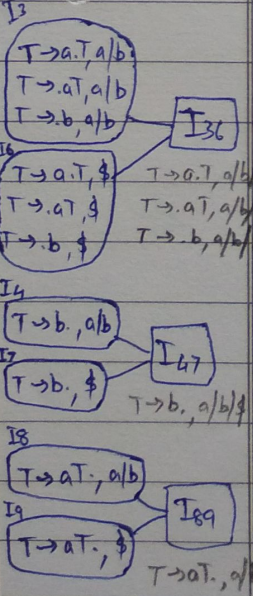 I3
T→a.T, a/b
T→.aT, a/b
T→.b, a/b
I36
I6
T→a.T, $
T→.aT, $
T→.b, $
T→a.T, a/b
T→.aT, a/b
T→.b, a/b/
I4
T→b., a/b
I47
I7
T→b., $
T→b., a/b/$
I8
T→aT., a/b
I89
I9
T→aT., $
T→aT., a/